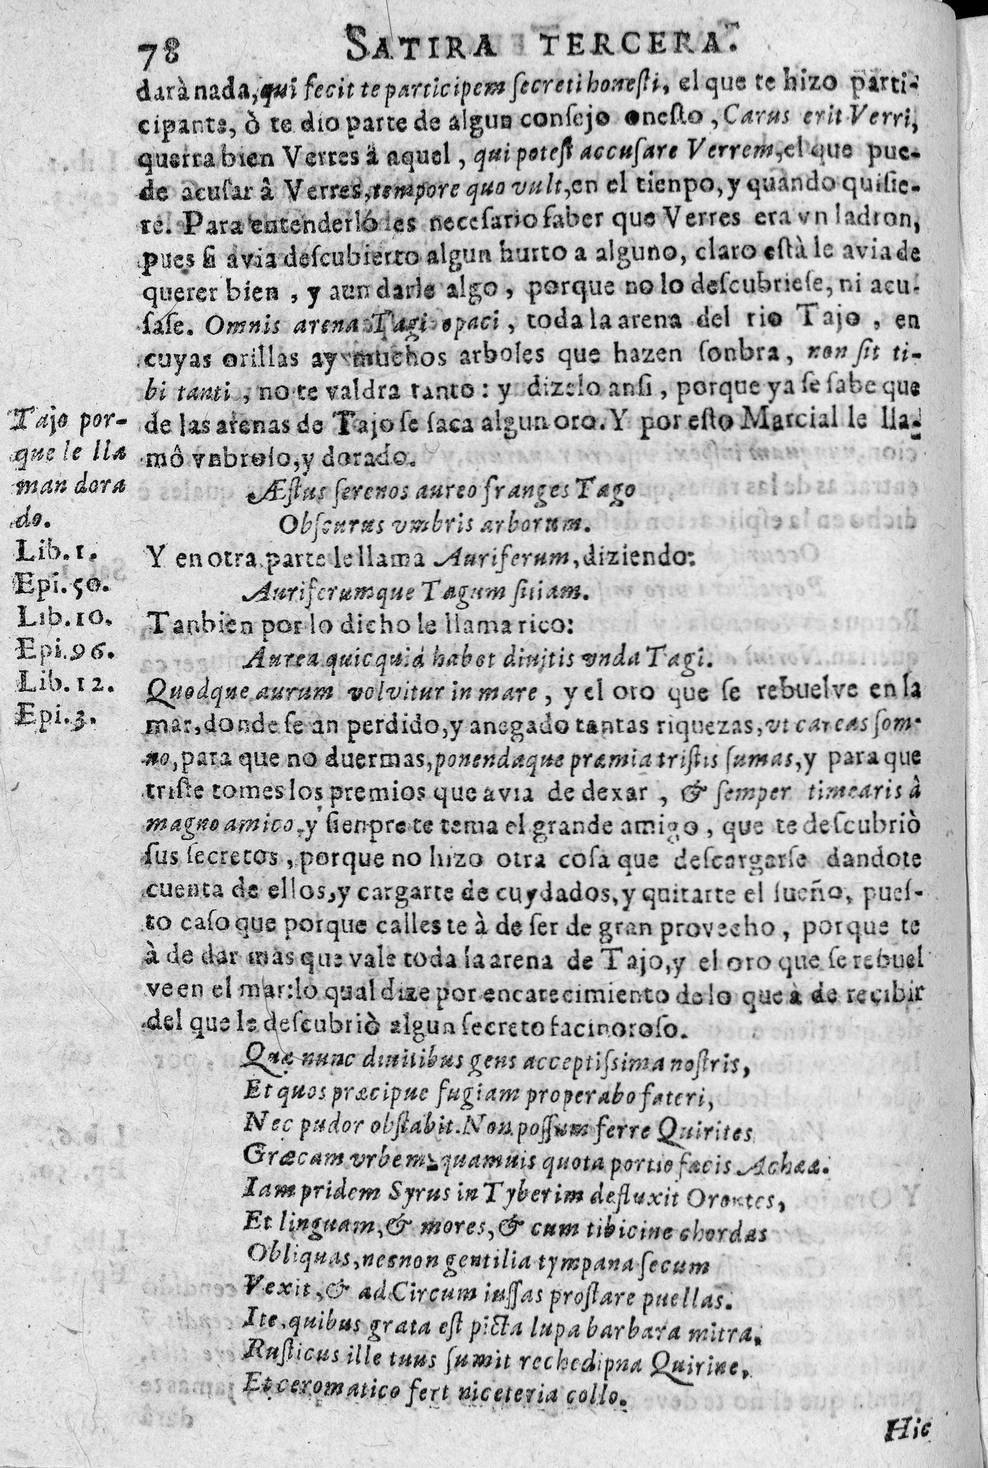 78 SATIRA TERCERA.
darà nada, qui fecit te participem secreti honesti, el que te hizo parti-
cipante, ò te dio parte de algun consejo onesto, Carus erit Verri,
querra bien Verres à aquel, qui potest accusare Verrem, el que pue-
de acusar â Verres, tempore quo vult, en el tienpo, y quando quisie-
re. Para entenderlo es necesario saber que Verres era vn ladron,
pues si avia descubierto algun hurto a alguno, claro està le avia de
querer bien, y aun darle algo, porque no lo descubriese, ni acu-
sase. Omnis arena Tagi opaci, toda la arena del rio Tajo, en
cuyas orillas ay muchos arboles que hazen sonbra, non sit ti-
bi tanti, no te valdra tanto: y dizelo ansi, porque ya se sabe que
de las arenas de Tajo se saca algun oro. Y por esto Marcial le lla-
mô vnbroso, y dorado.
Æstus serenos aureo franges Tago
Obscurus vmbris arborum.
Y en otra parte le llama Auriferum, diziendo:
Auriferumque Tagum sitiam.
Tanbien por lo dicho le llama rico:
Aurea quicquid habet diuitis vnda Tagi.
Quodque aurum volvitur in mare, y el oro que se rebuelve en la
mar, donde se an perdido, y anegado tantas riquezas, vt careas som-
no, para que no duermas, ponendaque præmia tristis sumas, y para que
triste tomes los premios que avia de dexar, & semper timearis à
magno amico, y sienpre te tema el grande amigo, que te descubriò
sus secretos, porque no hizo otra cosa que descargarse dandote
cuenta de ellos, y cargarte de cuydados, y quitarte el sueño, pues-
to caso que porque calles te à de ser de gran provecho, porque te
à de dar mas que vale toda la arena de Tajo, y el oro que se rebuel
ve en el mar: lo qual dize por encarecimiento de lo que à de recibir
del que le descubriò algun secreto facinoroso.
Quæ nunc diuitibus gens acceptissima nostris,
Et quos præcipue fugiam properabo fateri,
Nec pudor obstabit. Non possum ferre Quirites
Græcam vrbem, quamuis quota portio fæcis Achææ.
Iam pridem Syrus in Tyberim defluxit Orontes,
Et linguam, & mores, & cum tibicine chordas
Obliquas, necnon gentilia tympana secum
Vexit, & ad Circum iussas prostare puellas.
Ite, quibus grata est picta lupa barbara mitra,
Rusticus ille tuus sumit rechedipna Quirine,
Et ceromatico fert niceteria collo.
Hic
Tajo por-
que le lla
man dora
do.
Lib. 1.
Epi. 50.
Lib. 10.
Epi. 96.
Lib. 12.
Epi. 3.